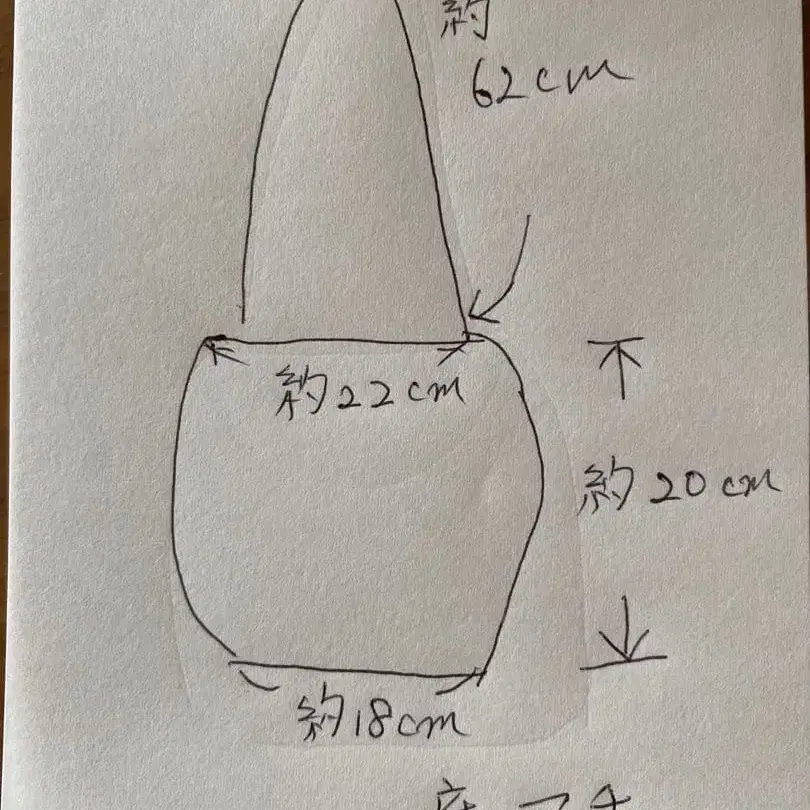 約
62cm
約22cm
約20cm
約18cm